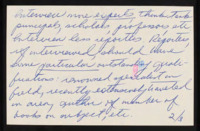 Interview more experts, think tank
principals, scholars, professors etc.
Interview less reporters. Reporters
if interviewed, should have
some particular outstanding quali-
fications: renowned specialist in
field, recently extensively traveled
in area, author of number of
books on subject etc.